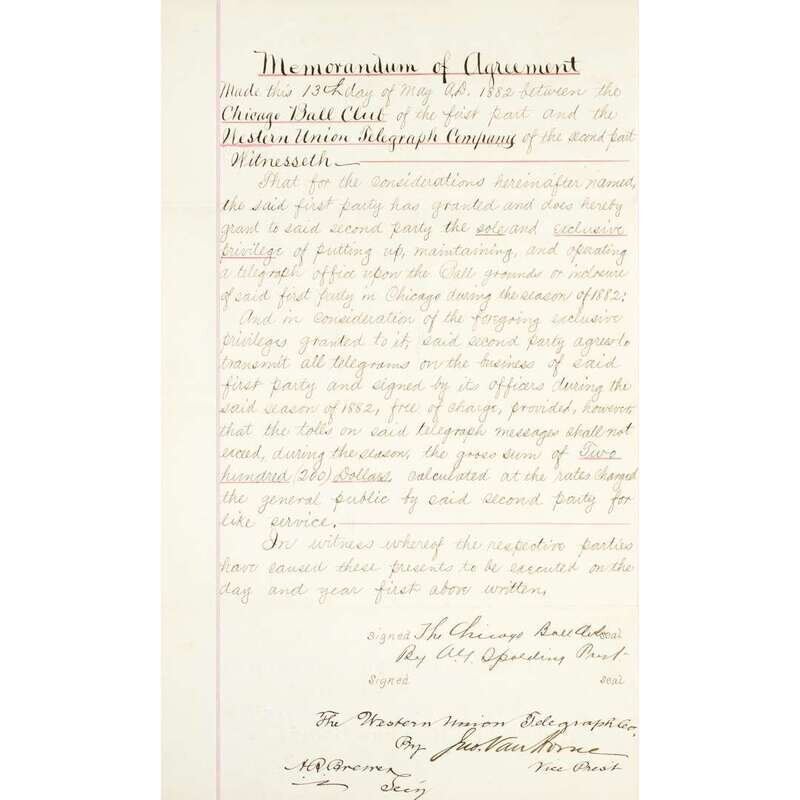 Memorandum of Agreement
Made this 13th day of May A.D. 1882 between the
Chicago Ball Club of the first part and the
Western Union Telegraph Company of the second part
Witnesseth
That for the considerations hereinafter named,
the said first party has granted and does hereby
grant to said second party the sole and exclusive
privilege of putting up, maintaining, and operating
a telegraph office upon the Ball grounds or inclosure
of said first party in Chicago during the season of 1882;
And in consideration of the foregoing exclusive
privileges granted to it, said second party agrees to
transmit all telegrams on the business of said
first party and signed by its officers during the
said season of 1882, free of charge, provided, however
that the tolls on said telegraph messages shall not
exceed, during the season, the gross sum of Two
hundred (200) Dollars, calculated at the rates charged
the general public by said second party for
like service.
In witness whereof the respective parties
have caused these presents to be executed on the
day and year first above written.
Signed The Chicago Ball Club seal
By A.G. Spalding Prest
Signed seal
The Western Union Telegraph Co.
By Jno. Van Horne
Vice Prest
A.R. Brewer